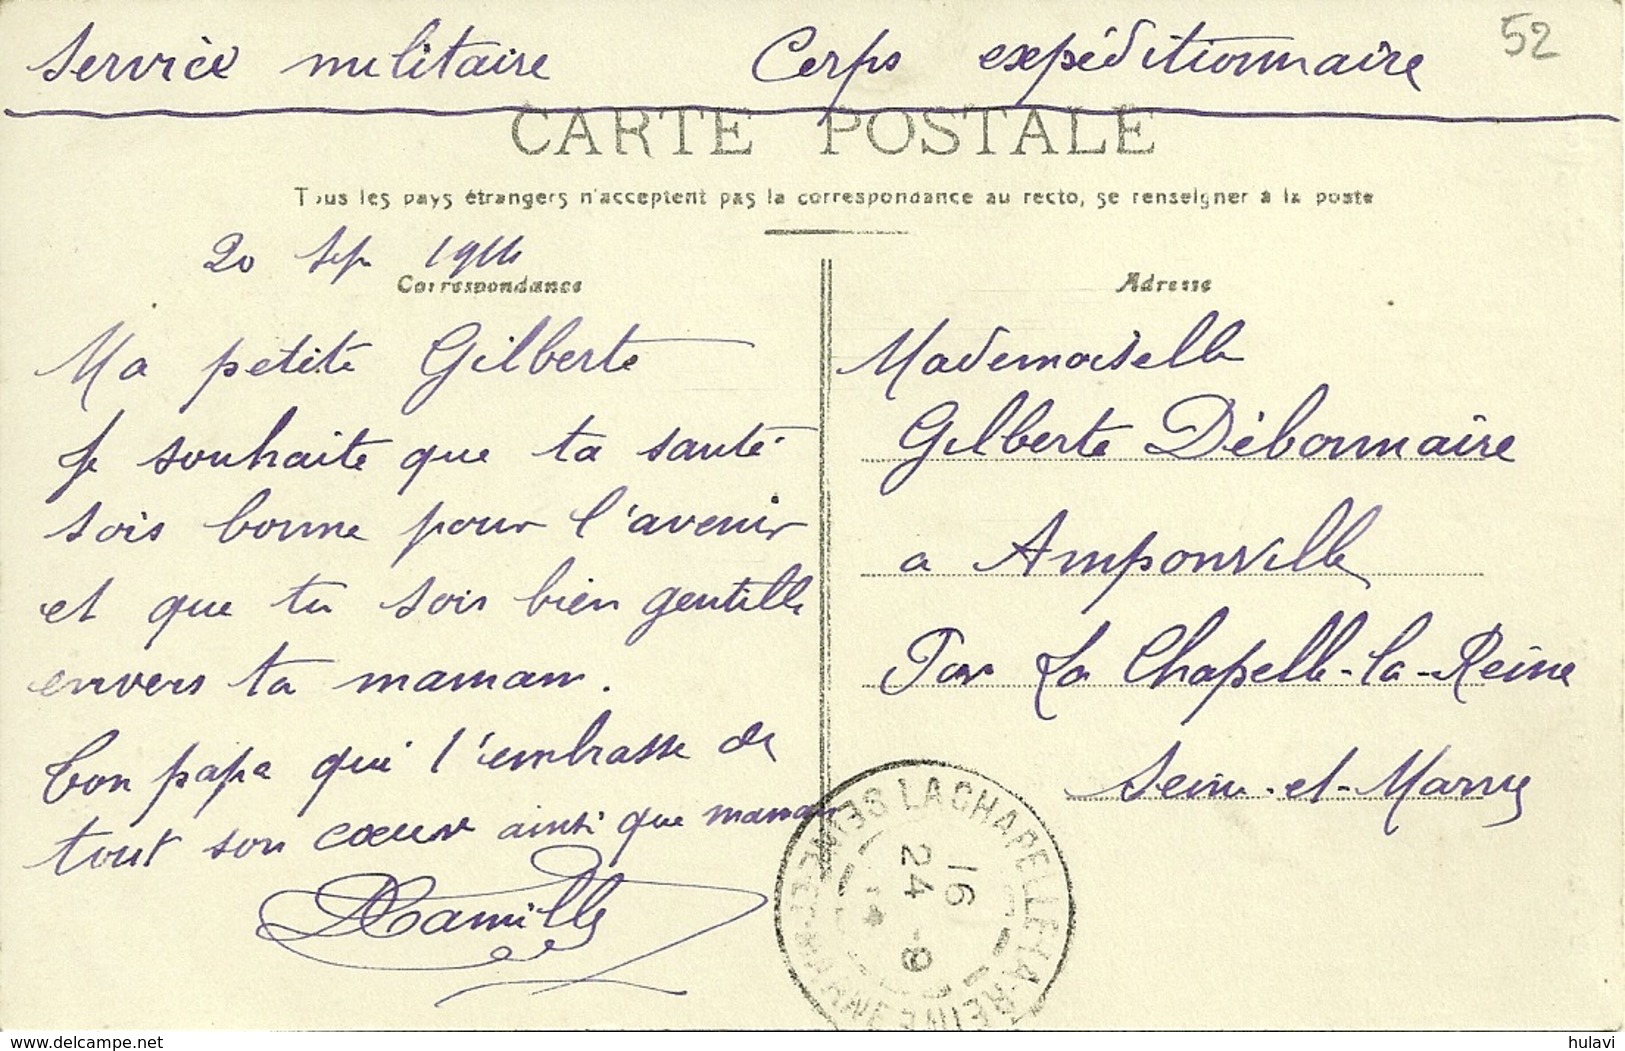 Service militaire Corps expéditionnaire
52
CARTE POSTALE
Tous les pays étrangers n'acceptent pas la correspondance au recto, se renseigner à la poste
20 Sep 1914
Correspondance
Ma petite Gilberte
Je souhaite que ta santé
sois bonne pour l'avenir
et que tu sois bien gentille
envers ta maman.
Ton papa qui t'embrasse de
tout son coeur ainsi que maman
Camille
Adresse
Mademoiselle
Gilberte Débonnaire
a Amponville
Par La Chapelle-la-Reine
Seine-et-Marne
LA CHAPELLE-LA-REINE SEINE-ET-MARNE
16
24 -9
14
delcampe.net
hulavi